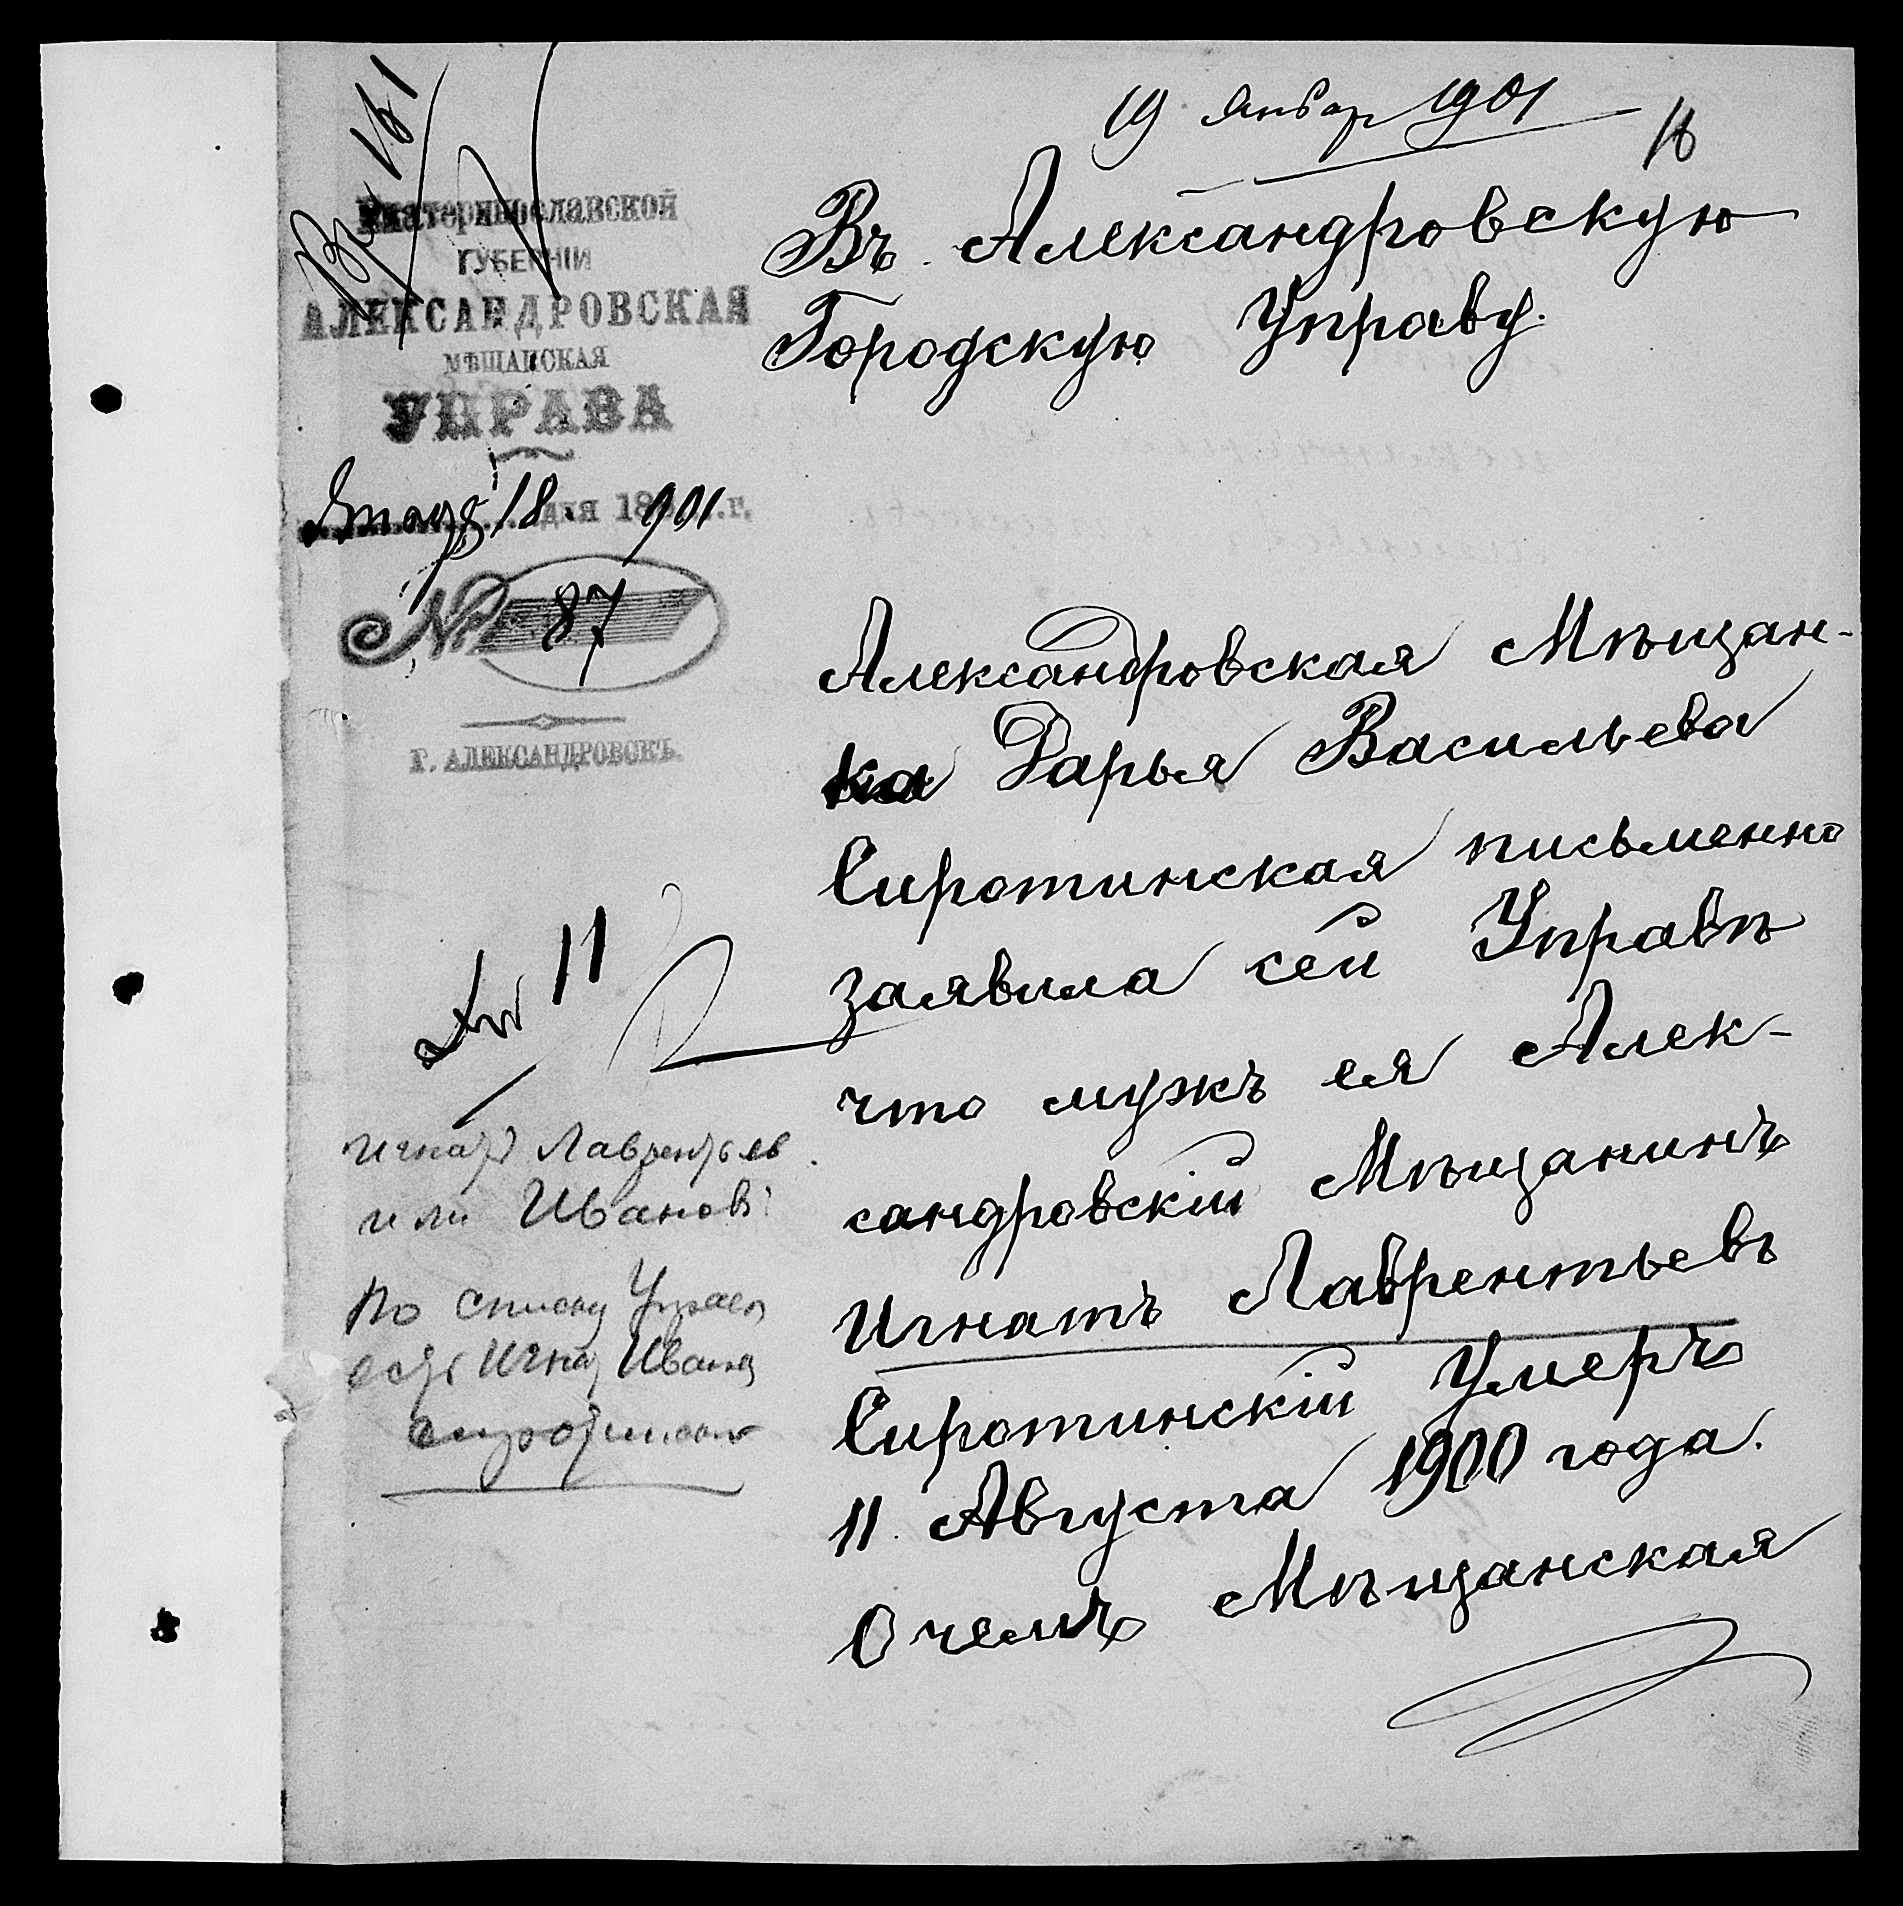 19 Январ 1901
16
Вх 161
Екатеринославской
ГУБЕРНІИ
АЛЕКСАНДРОВСКАЯ
МѢЩАНСКАЯ
УПРАВА
Январ 18 дня 1901 г.
№ 87
Г. АЛЕКСАНДРОВСКЪ.
Въ Александровскую
Городскую Управу.
Александровская Мѣщан-
ка Дарья Васильева
Сиротинская письменно
заявила сей Управѣ
что мужъ ея Алек-
сандровскій Мѣщанинъ
Игнатъ Лаврентьевъ
Сиротинскій Умеръ
11 Августа 1900 года.
О чемъ Мѣщанская
11
Игнат Лаврентьев
или Иванов?
По списку Управ
есть Игнат Иванов
Сиротинск